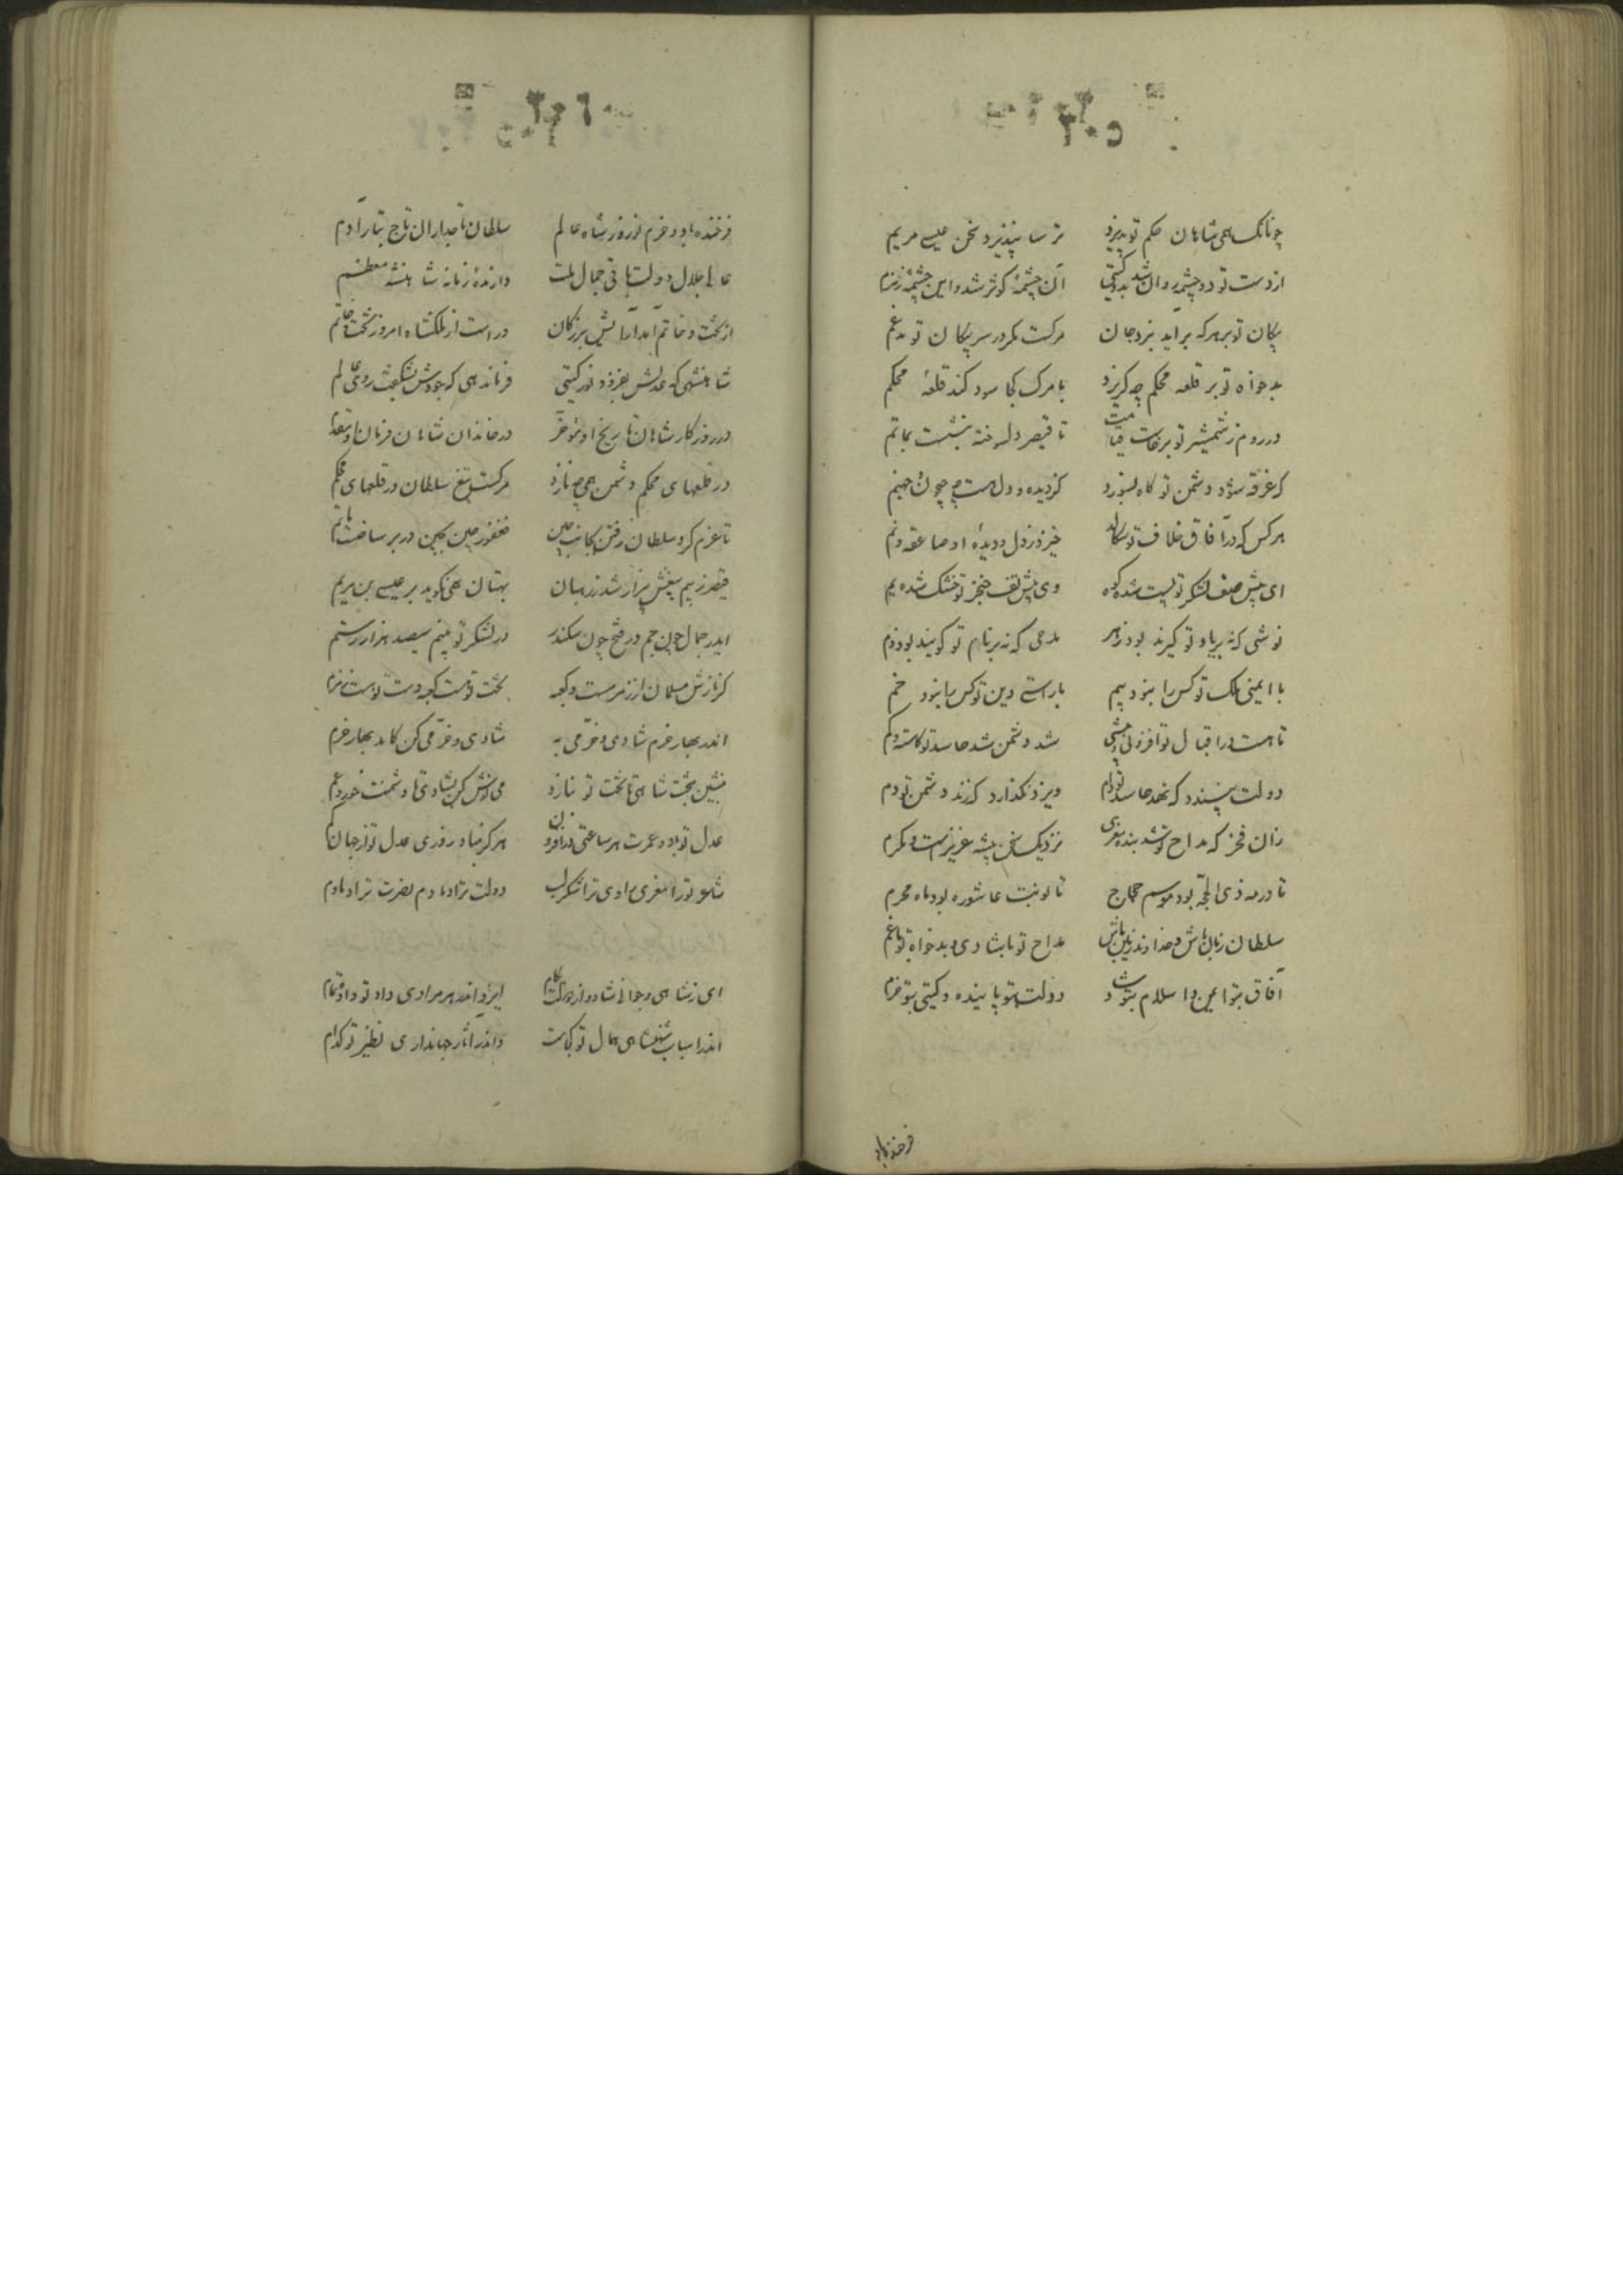 چونانکه همی شاهان حکم تو پذیرند ترسا نپذیرد سخن عیسی مریم
از دست تو دو چشمه روان شد بدو گیتی آن چشمهٔ کوثر شد و این چشمهٔ زمزم
پیکان تو بر هرکه برآید ببرد جان مرگست مگر در سر پیکان تو مدغم
بدخواه تو بر قلعه محکم چه گریزد با مرگ کجا سود کند قلعهٔ محکم
در روم ز شمشیر تو برخاست قیامت تا قیصر دلسوخته بنشست بماتم
که غرقه شود دشمن تو گاه بسوزد کز دیده و دل هست چو جهنم
هر کس که در آفاق خلاف تو سگالد خیزد ز دل و دیدهٔ او صاعقه و نم
ای پیش صف لشکر تو پست شده کوه وی پیش تف خنجر تو خشک شده یم
نوشی که نه بر یاد تو گیرند بود زهر مدحی که نه بر نام تو گویند بود ذم
با ایمنی ملک تو کس را نبود بیم با راستی دین تو کس را نبود خم
تا هست در اقبال تو افزونی و بیشی شد دشمن شد حاسد تو کاسته و کم
دولت نپسندد که نهد حاسد تو گام و ایزد نگذارد که زند دشمن تو دم
زان فخر که مداح تو شد بنده معزی نزدیک سخن پیشه عزیزست و مکرم
تا در مه ذی الحجه بود موسم حجاج تا نوبت عاشوره بود ماه محرم
سلطان زمان باش و خداوند زمین باش مداح تو با شادی و بدخواه تو با غم
آفاق بتو ایمن و اسلام بتو شاد دولت بتو پاینده و گیتی بتو خرم
فرخنده باد
فرخنده باد و خرم نوروز شاه عالم سلطان تاجداران تاج تبار آدم
عالی جلال دولت باقی جمال ملت دارندهٔ زمانه شاهنشه معظم
از تخت و خاتم آمد آرایش بزرگان در است از ملکشاه امروز تخت و خاتم
شاهنشهی که عدلش بفزود نور گیتی فرماندهی که جودش بشکفت روی عالم
در روزگار شاهان تاریخ او مؤخر در خاندان شاهان فرمان او مقدم
در قلعهای محکم دشمن همی چه نازد مرگست تیغ سلطان در قلعهای محکم
تا عزم کرد سلطان رفتن بجانب چین فغفور چین بچین در برساخت ماتم
قیصر ز بیم تیغش بیزار شد ز رهبان بهتان همی نگوید بر عیسی بن مریم
ای در جمال چون جم در فتح چون سکندر در لشکر تو بینم سیصد هزار رستم
گر نازش مسلمان از زمزمست و کعبه تخت توست کعبه دست توست زمزم
اندر بهار خرم شادی و خرمی به شادی و خرمی کن کامد بهار خرم
بنشین بتخت شاهی تا تخت تو بنازد می نوش کن بشادی تا دشمنت خورد غم
عدل تو باد و عمرت هر ساعتی در افزون هرگز مباد روزی عدل تو از جهان کم
شعر تو را معزی مر اوی ترا شکر لب دولت ترا دمادم نصرت ترا دمادم
ای ز شاهی و جوانی شاد و از دولت بکام ایزد اندر هر مرادی داد تو داده تمام
اندر اسباب شهنشاهی همال تو کجاست واندر آثار جهانداری نظیر تو کدام